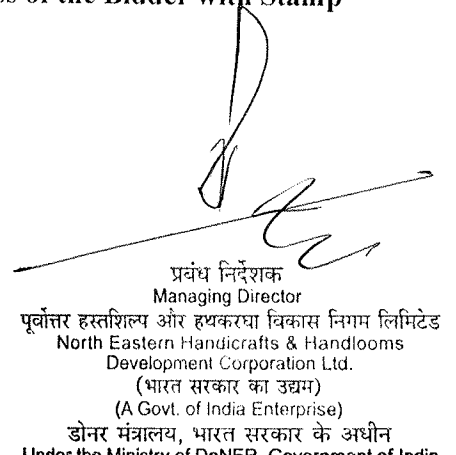 of the Bidder with Stamp
प्रबंध निर्देशक
Managing Director
पूर्वोत्तर हस्तशिल्प और हथकरघा विकास निगम लिमिटेड
North Eastern Handicrafts & Handlooms
Development Corporation Ltd.
(भारत सरकार का उद्यम)
(A Govt. of India Enterprise)
डोनर मंत्रालय, भारत सरकार के अधीन
Under the Ministry of DoNER, Government of India